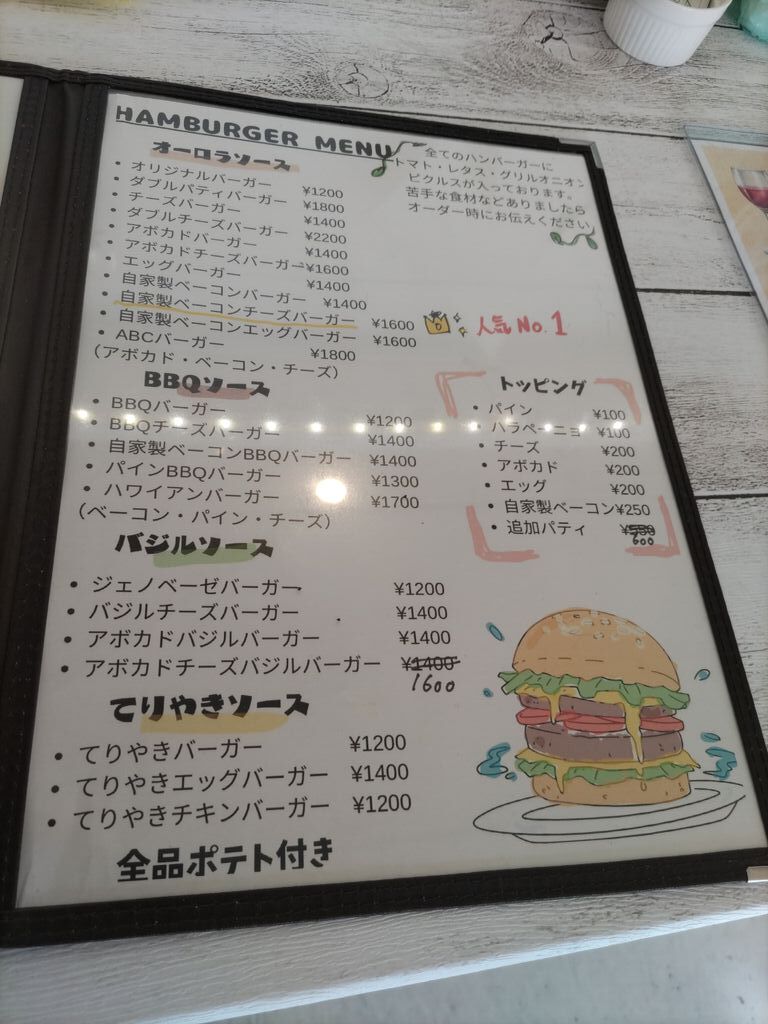 HAMBURGER MENU
全てのハンバーガーに
トマト・レタス・グリルオニオン
ピクルスが入っております。
苦手な食材などありましたら
オーダー時にお伝えください
オーロラソース
• オリジナルバーガー ¥1200
• ダブルパティバーガー ¥1800
• チーズバーガー ¥1400
• ダブルチーズバーガー ¥2200
• アボカドバーガー ¥1400
• アボカドチーズバーガー ¥1600
• エッグバーガー ¥1400
• 自家製ベーコンバーガー ¥1400
• 自家製ベーコンチーズバーガー ¥1600 人気No.1
• 自家製ベーコンエッグバーガー ¥1600
• ABCバーガー ¥1800
(アボカド・ベーコン・チーズ)
BBQソース
• BBQバーガー ¥1200
• BBQチーズバーガー ¥1400
• 自家製ベーコンBBQバーガー ¥1400
• パインBBQバーガー ¥1300
• ハワイアンバーガー ¥1700
(ベーコン・パイン・チーズ)
トッピング
• パイン ¥100
• ハラペーニョ ¥100
• チーズ ¥200
• アボカド ¥200
• エッグ ¥200
• 自家製ベーコン¥250
• 追加パティ
600
バジルソース
• ジェノベーゼバーガー ¥1200
• バジルチーズバーガー ¥1400
• アボカドバジルバーガー ¥1400
• アボカドチーズバジルバーガー ¥1400
1600
てりやきソース
• てりやきバーガー ¥1200
• てりやきエッグバーガー ¥1400
• てりやきチキンバーガー ¥1200
全品ポテト付き